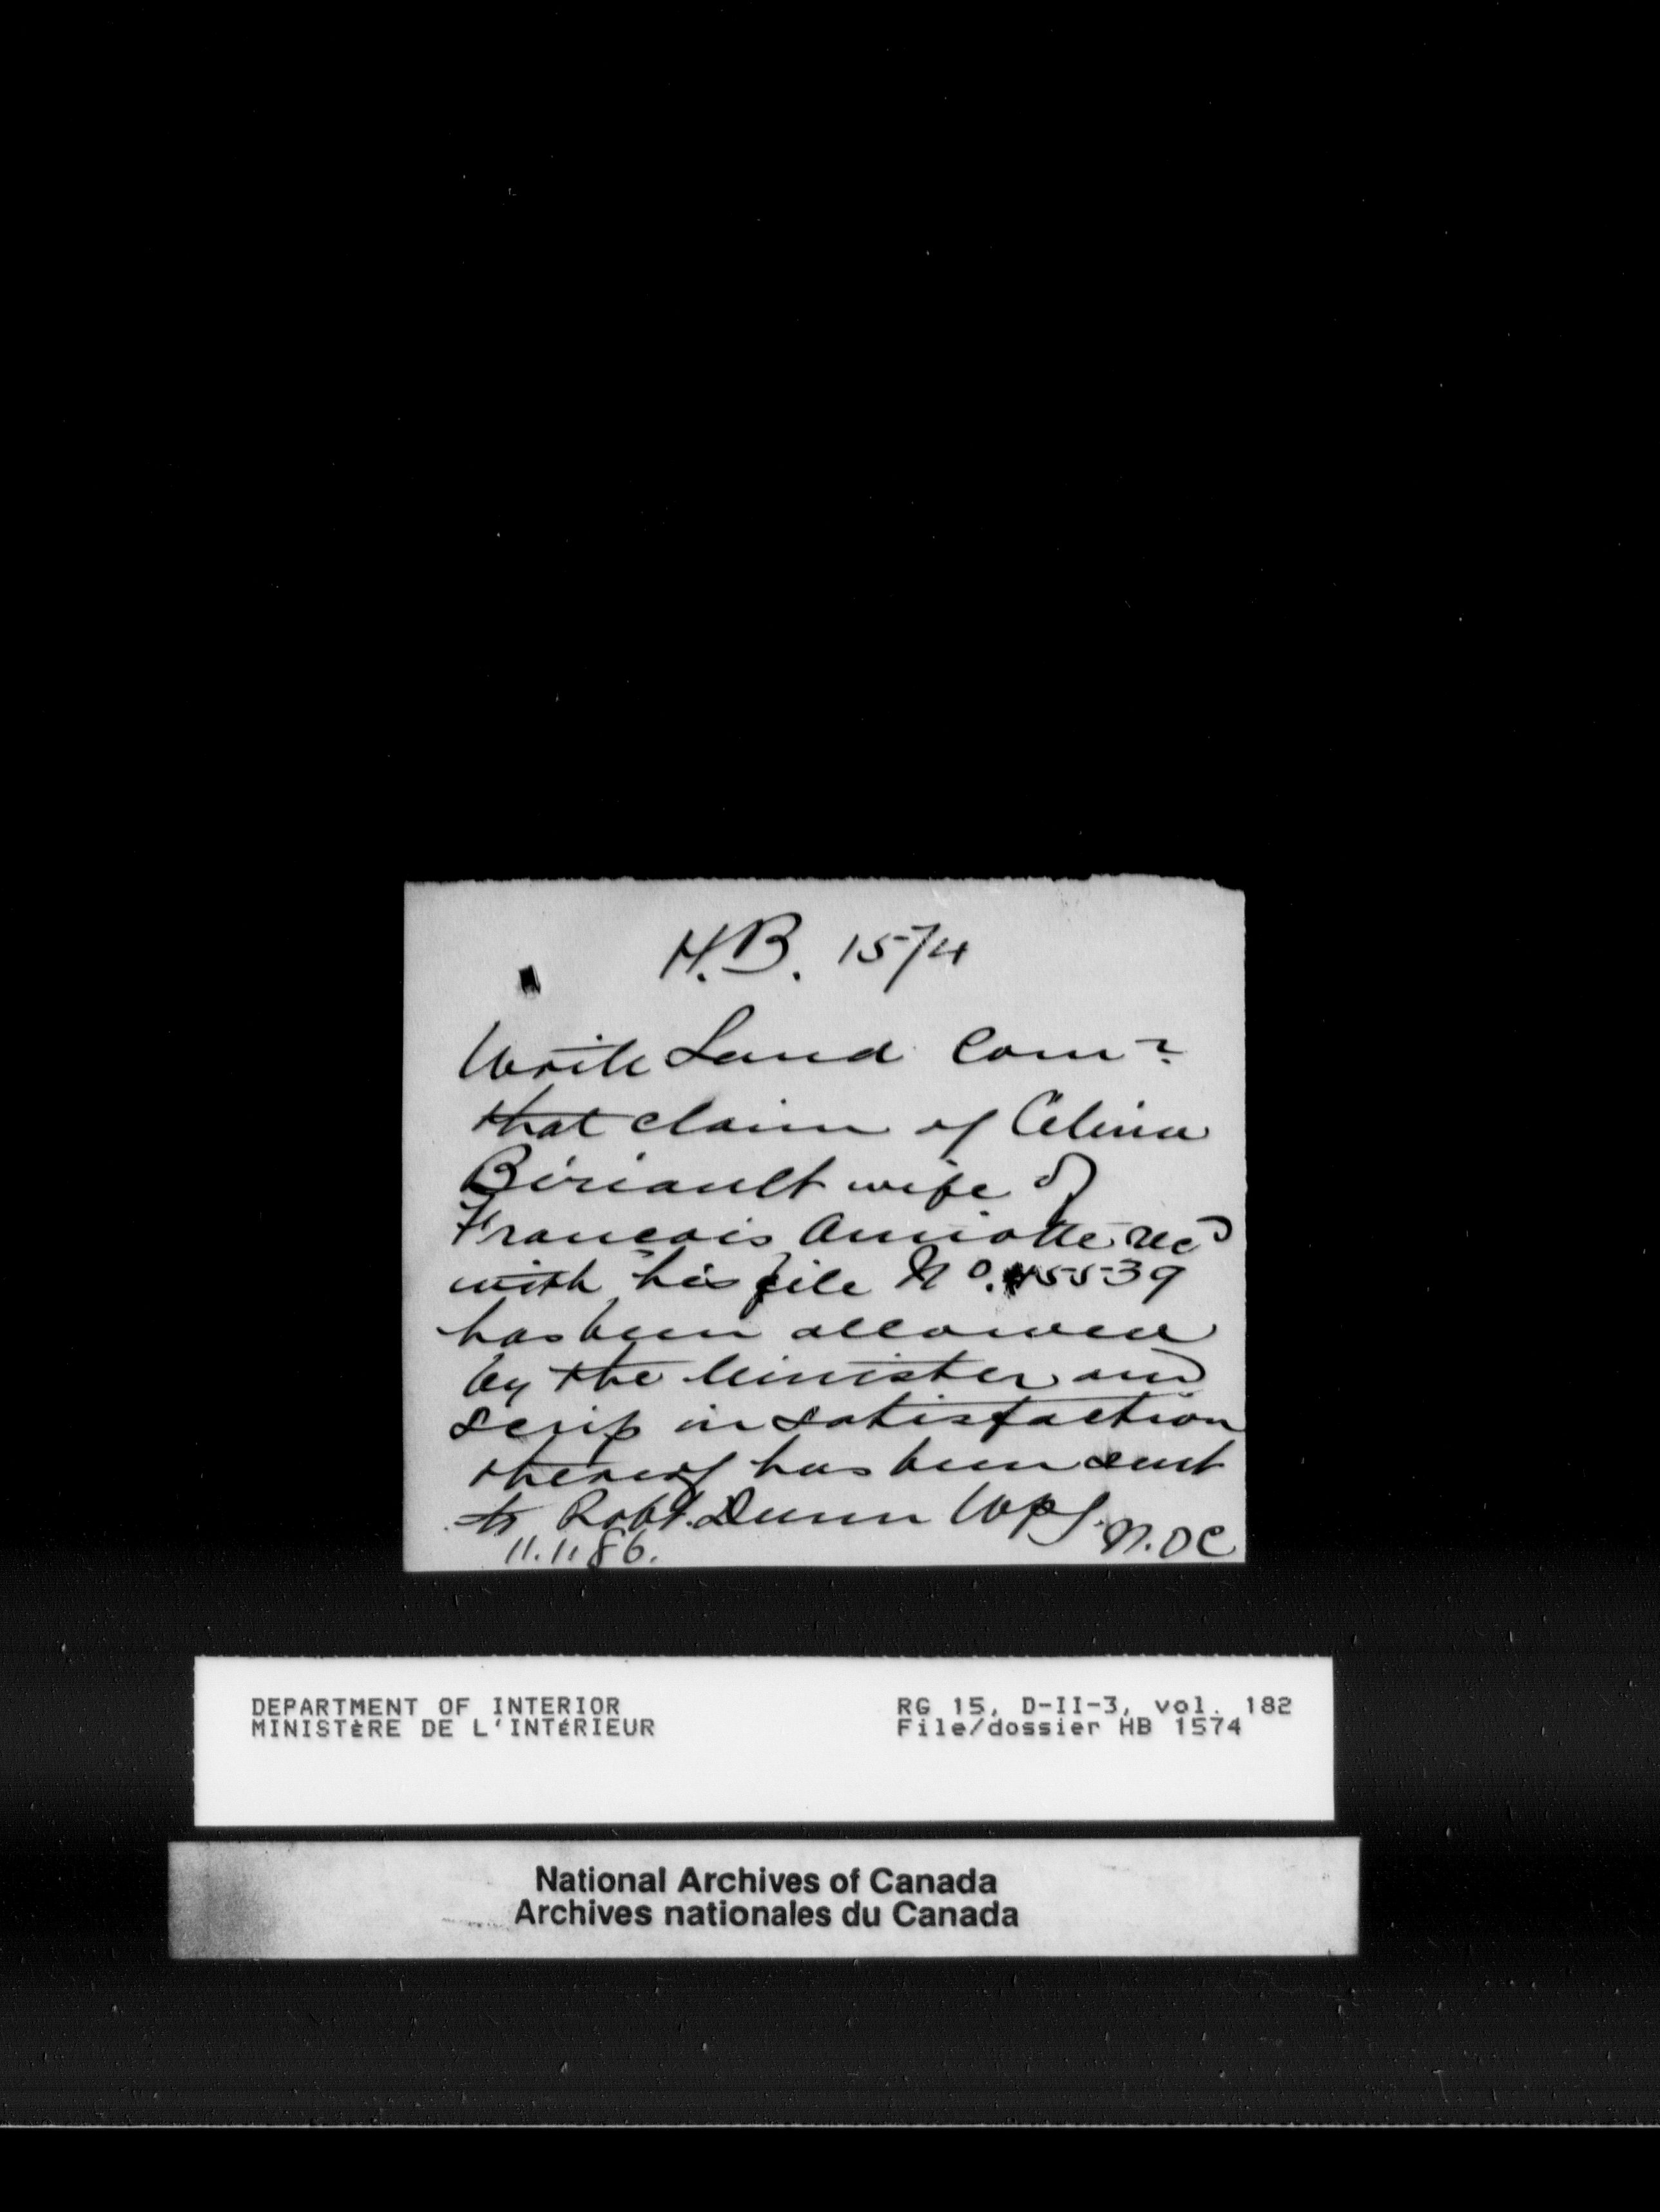 H.B. 1574
Write Land Comr
that claim of Célina
Bériault wife of
Francois Amiotte recd
with his file No. 45539
has been allowed
by the Minister and
scrip in satisfaction
thereof has been sent
to Robt. Dunn Wpg.
11.11.86. N.O.C
DEPARTMENT OF INTERIOR
MINISTÈRE DE L'INTÉRIEUR
RG 15, D-II-3, vol. 182
File/dossier HB 1574
National Archives of Canada
Archives nationales du Canada